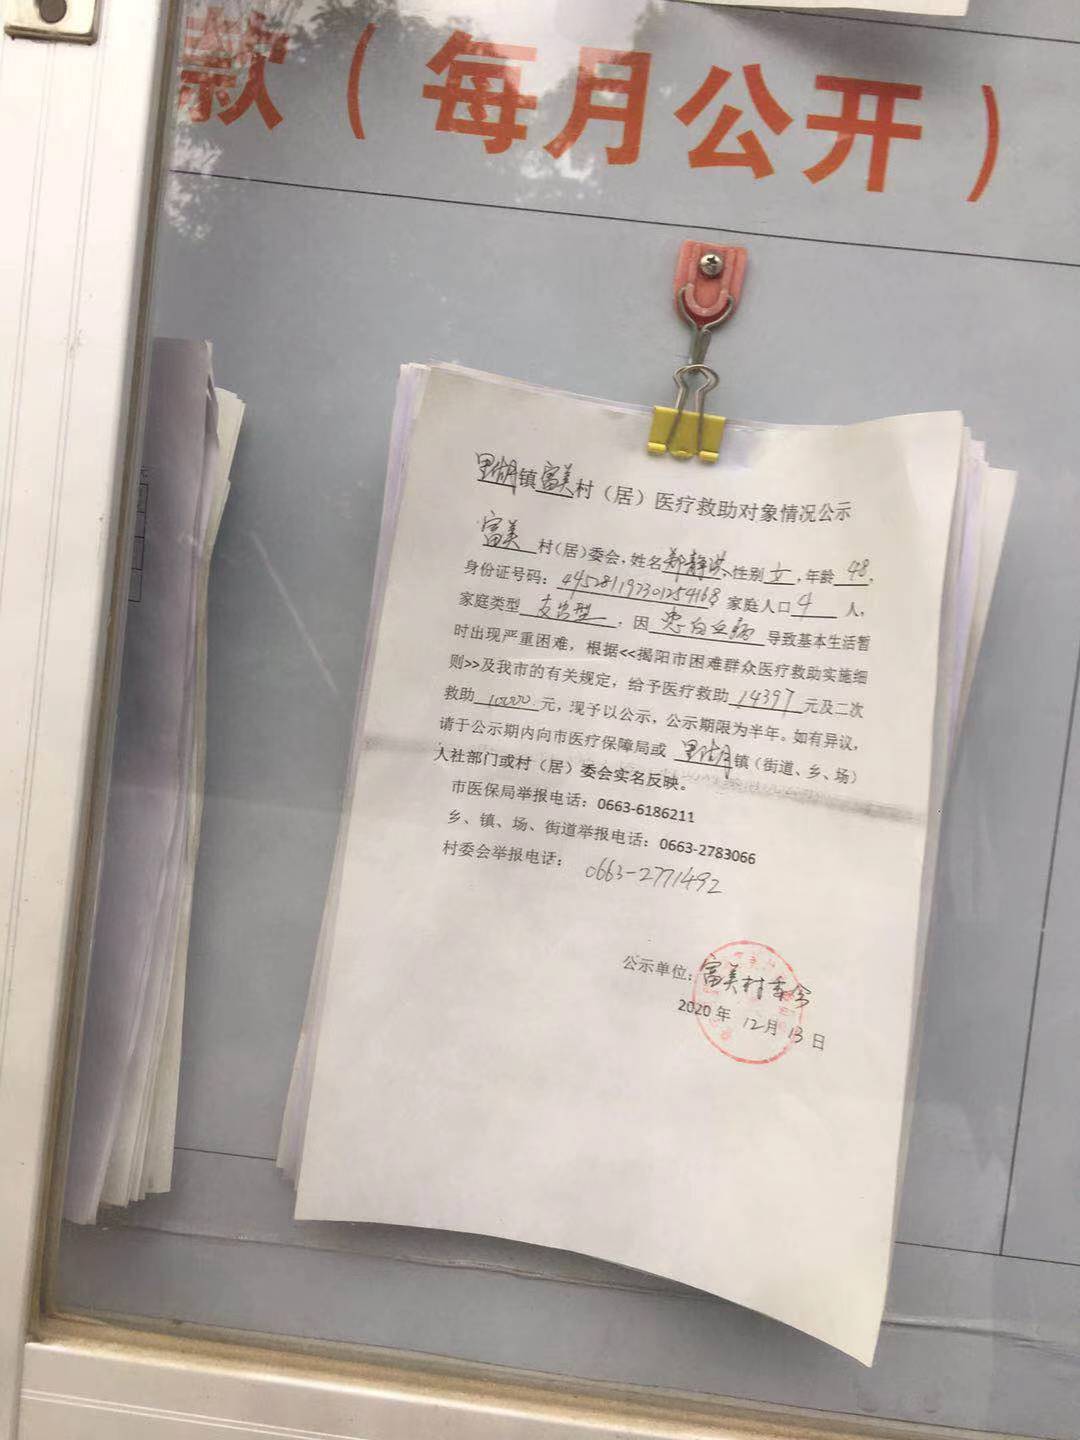 款（每月公开）
里湖镇富美村（居）医疗救助对象情况公示
富美 村(居)委会，姓名郑静，性别女，年龄48，
身份证号码：445281197301254168 家庭人口4人，
家庭类型支出型，因患白血病导致基本生活暂
时出现严重困难，根据<<揭阳市困难群众医疗救助实施细
则>>及我市的有关规定，给予医疗救助14397元及二次
救助10000元，现予以公示，公示期限为半年。如有异议，
请于公示期内向市医疗保障局或里湖镇（街道、乡、场）
人社部门或村（居）委会实名反映。
市医保局举报电话：0663-6186211
乡、镇、场、街道举报电话：0663-2783066
村委会举报电话：0663-2771492
公示单位：富美村委会
2020年12月13日